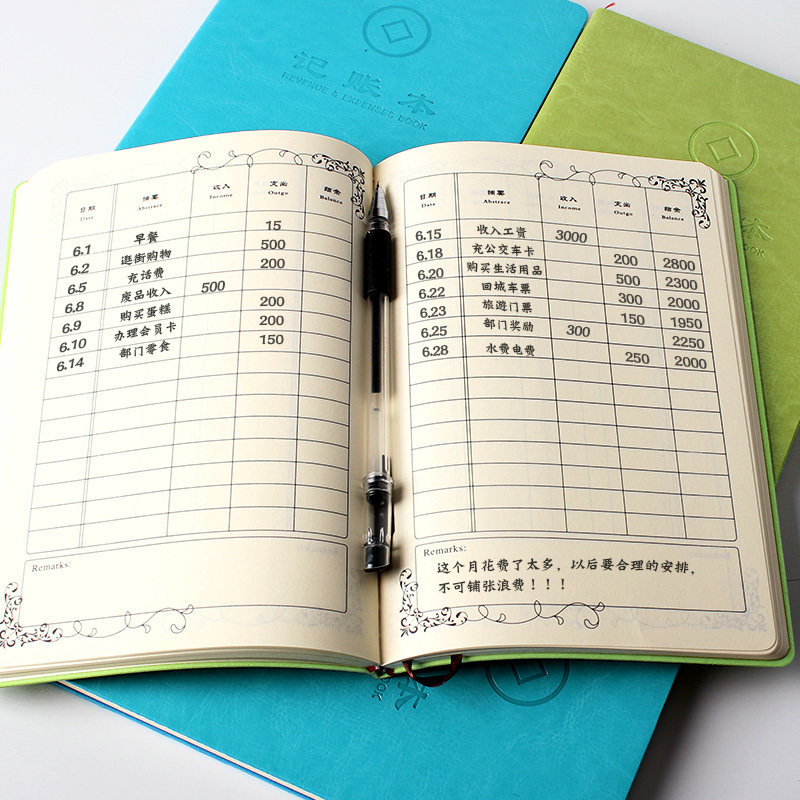 记账本
REVENUE & EXPENSES BOOK
日期 摘要 收入 支出 结余
Date Abstrace Income Outgo Balance
6.1 早餐 15
6.2 逛街购物 500
6.5 充话费 200
6.8 废品收入 500
6.9 购买蛋糕 200
6.10 办理会员卡 200
6.14 部门零食 150
Remarks:
日期 摘要 收入 支出 结余
Date Abstrace Income Outgo Balance
6.15 收入工资 3000
6.18 充公交车卡 200 2800
6.20 购买生活用品 500 2300
6.22 回城车票 300 2000
6.23 旅游门票 150 1950
6.25 部门奖励 300 2250
6.28 水费电费 250 2000
Remarks:
这个月花费了太多，以后要合理的安排，
不可铺张浪费！！！
本
BOOK
本
OOK